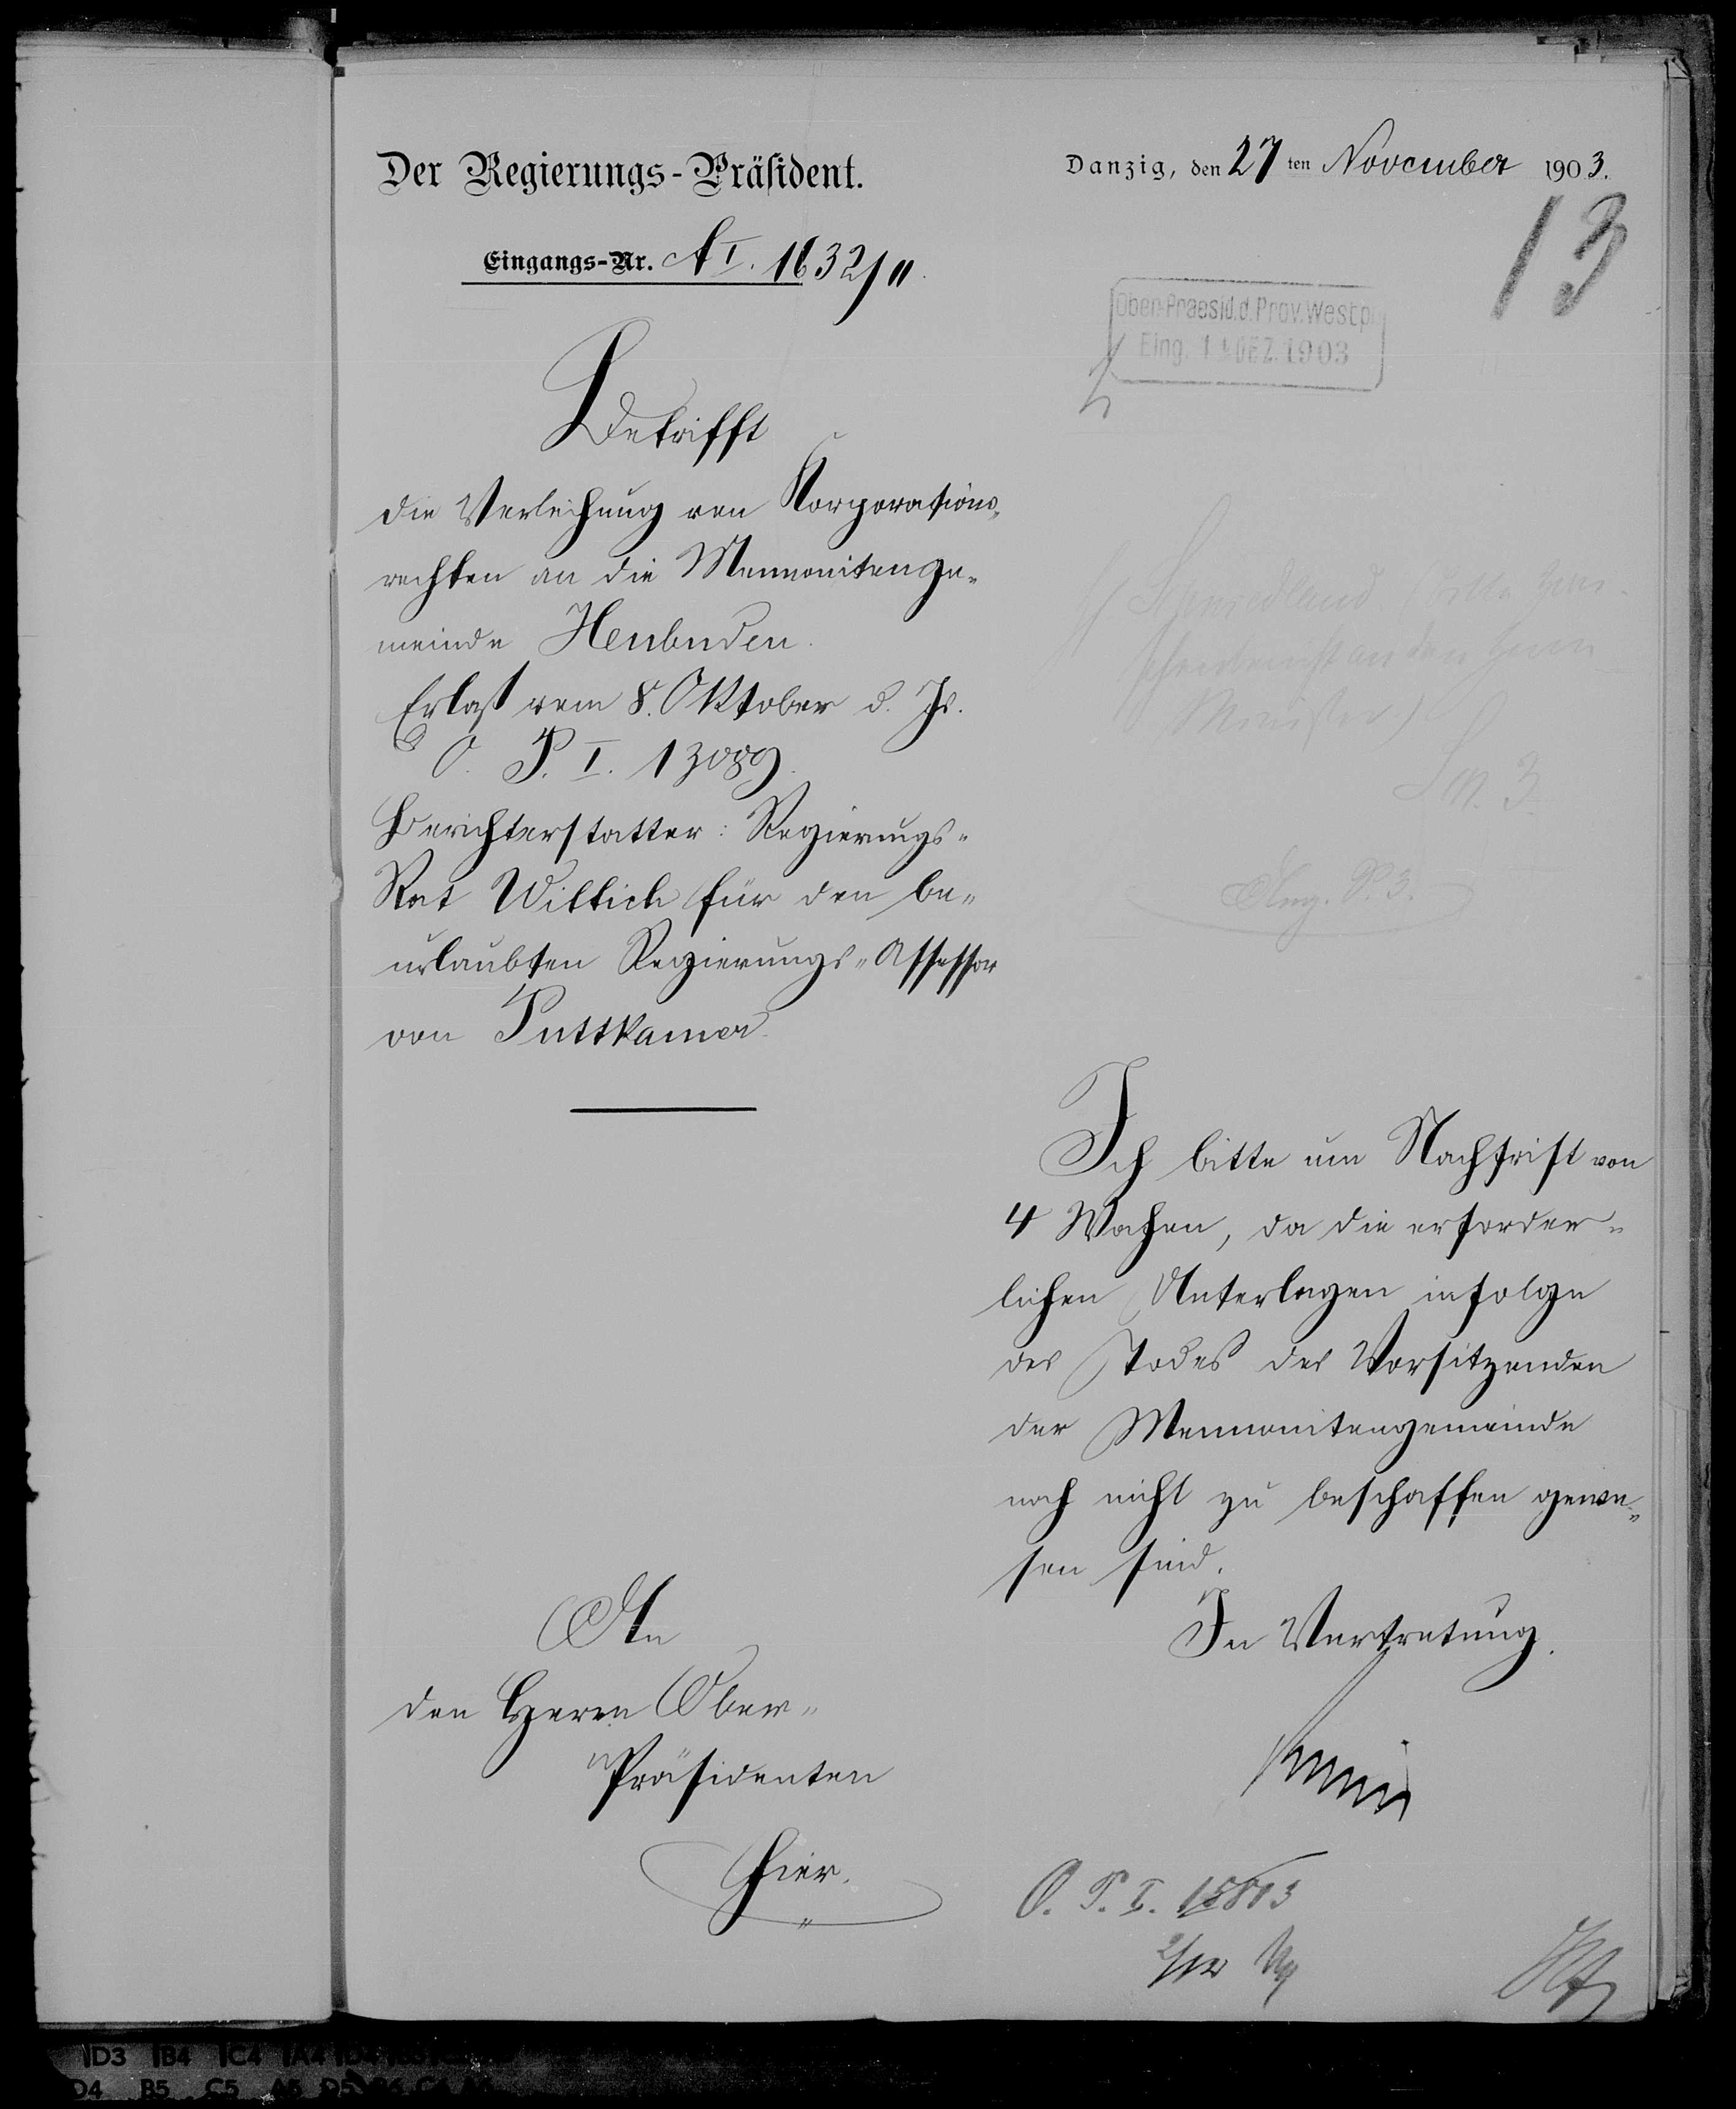 Der Regierungs-Präsident.
Danzig, den 27 ten November 1903.
13
Eingangs-Nr. A I. 1632/11.
Ober-Praesid. d. Prov. Westpr
Eing. 1 DEZ. 1903
Betrifft
die Verleihung von Korporations-
rechten an die Mennonitenge-
meinde Heubuden.
Erlaß vom 8. Oktober d. Js.
O. P. I. 13089.
Berichterstatter: Regierungs-
Rat Wittich für den be-
urlaubten Regierungs-Assessor
von Puttkamer.
Minister)
Ich bitte um Nachfrist von
4 Wochen, da die erforder-
lichen Unterlagen infolge
des Todes des Vorsitzenden
der Mennonitengemeinde
noch nicht zu beschaffen gewe-
sen sind.
In Vertretung.
An
den Herrn Ober-
Präsidenten
hier.
O. P. I. 15813
2/12
D3 B4 C4 A4
D4 B5 C5 A5 D5